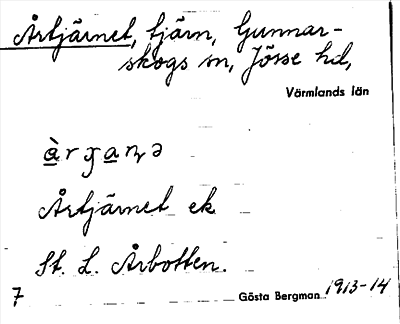 Årtjärnet, tjärn, Gunnar-
skogs sn, Jösse hd,
Värmlands län
Årtjärnet ek
St. L. Årbotten.
7 Gösta Bergman 1913-14